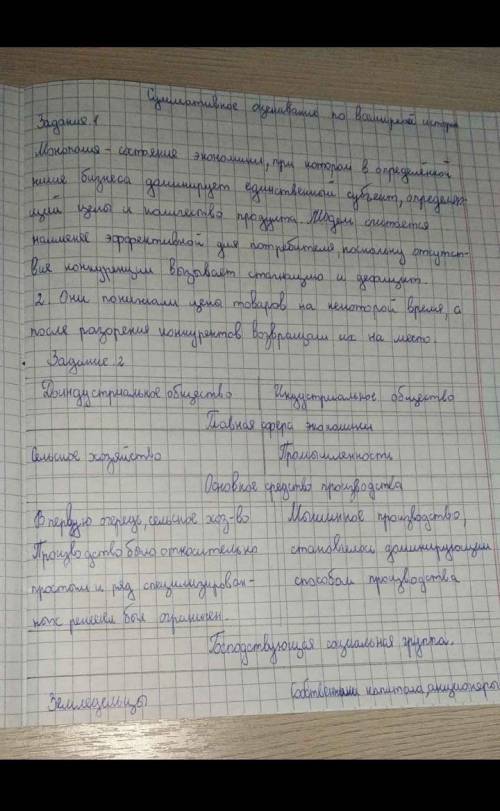 Суммативное оценивание по всемирной истории
Задания.1
Монополия - состояние экономики, при котором в определённой
нише бизнеса доминирует единственный субъект, определяю-
щий цены и количество продукта. Модель считается
наименее эффективной для потребителя, поскольку отсутст-
вие конкуренции вызывает стагнацию и дефицит.
2. Они понижали цены товаров на некоторой время, а
после разорения конкурентов возвращали их на место.
Задание.2
Доиндустриальное общество Индустриальное общество
Главная сфера экономики
Сельское хозяйство Промышленность
Основное средство производства
В первую очередь, сельское хоз-во Машинное производство,
Производство было относительно становилось доминирующим
простым и ряд специализирован- способом производства
ных ремёсел был ограничен.
Господствующая социальная группа.
Земледельцы Собственники капитала, акционеры